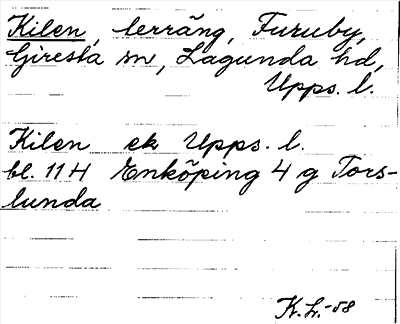 Kilen, terräng, Furuby,
Giresta sn, Lagunda hd,
Upps. l.
Kilen ek Upps. l.
bl. 114 Enköping 4 g Tors-
lunda
K.L.-58